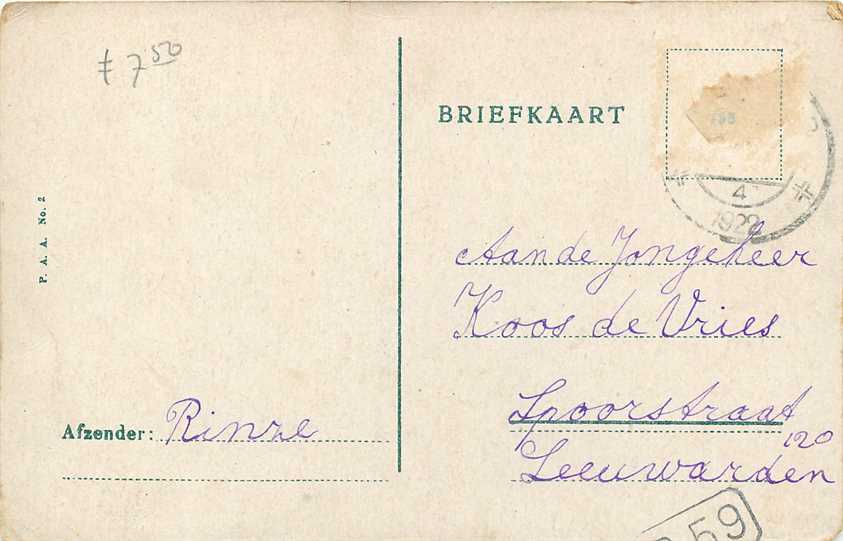 ₤ 7 50
P. A. A. No. 2
Afzender: Rinze
BRIEFKAART
4
1922
Aan de Jongeheer
Koos de Vries
Spoorstraat
120
Leeuwarden
59